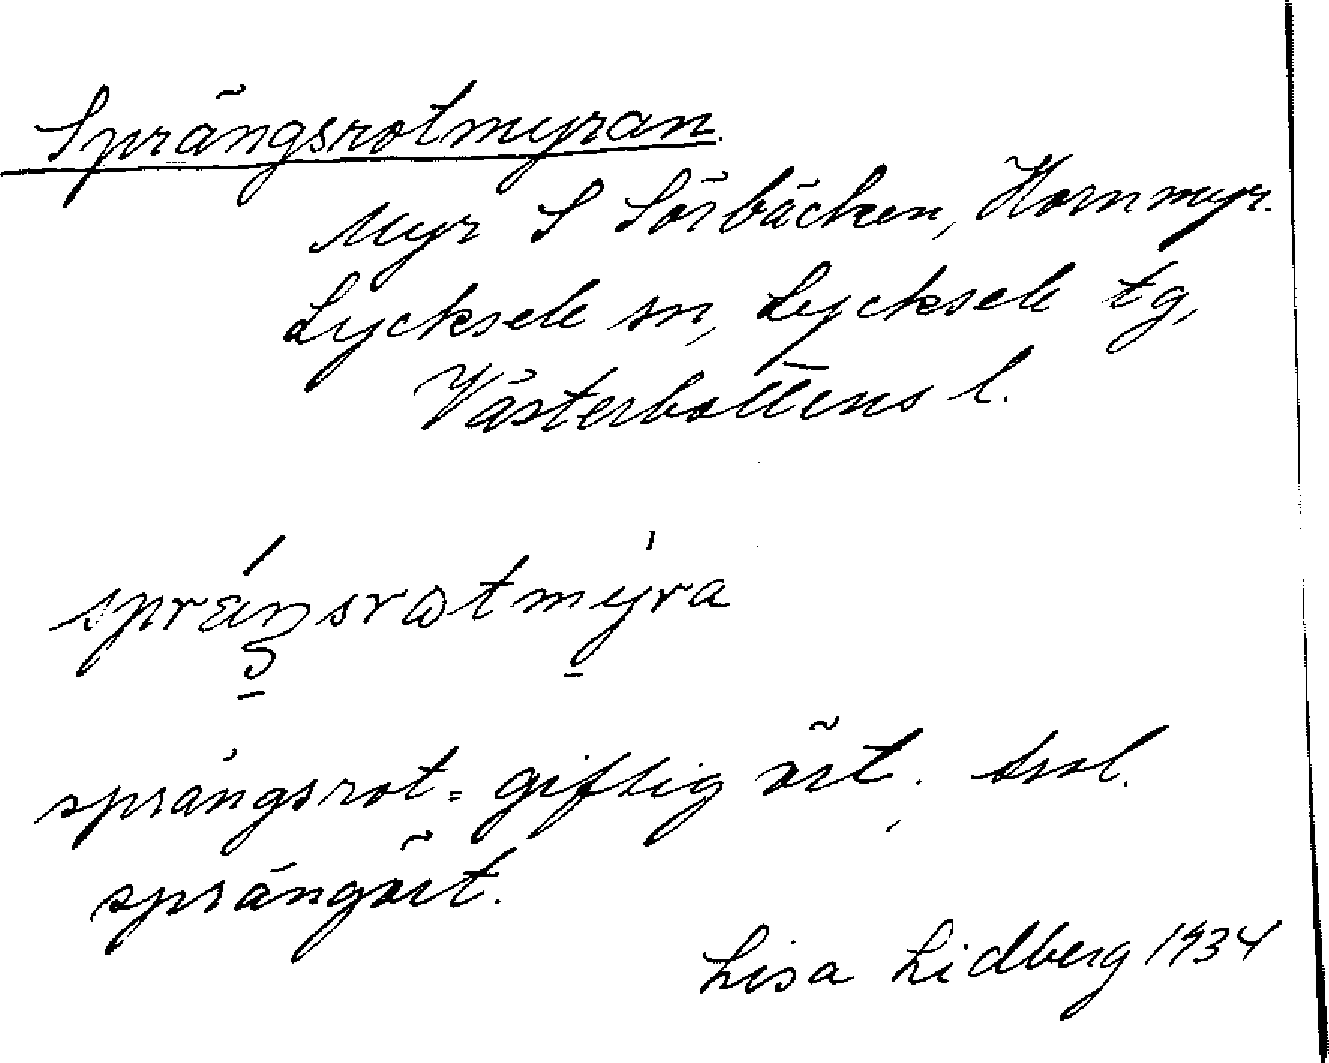 Sprängsrotmyran.
Myr S Sörbäcken, Hornmyr.
Lycksele sn, Lycksele tg,
Västerbottens l.
sprängsrotmyra
sprängsrot = giftig ört.
sprängört.
Lisa Lidberg 1934